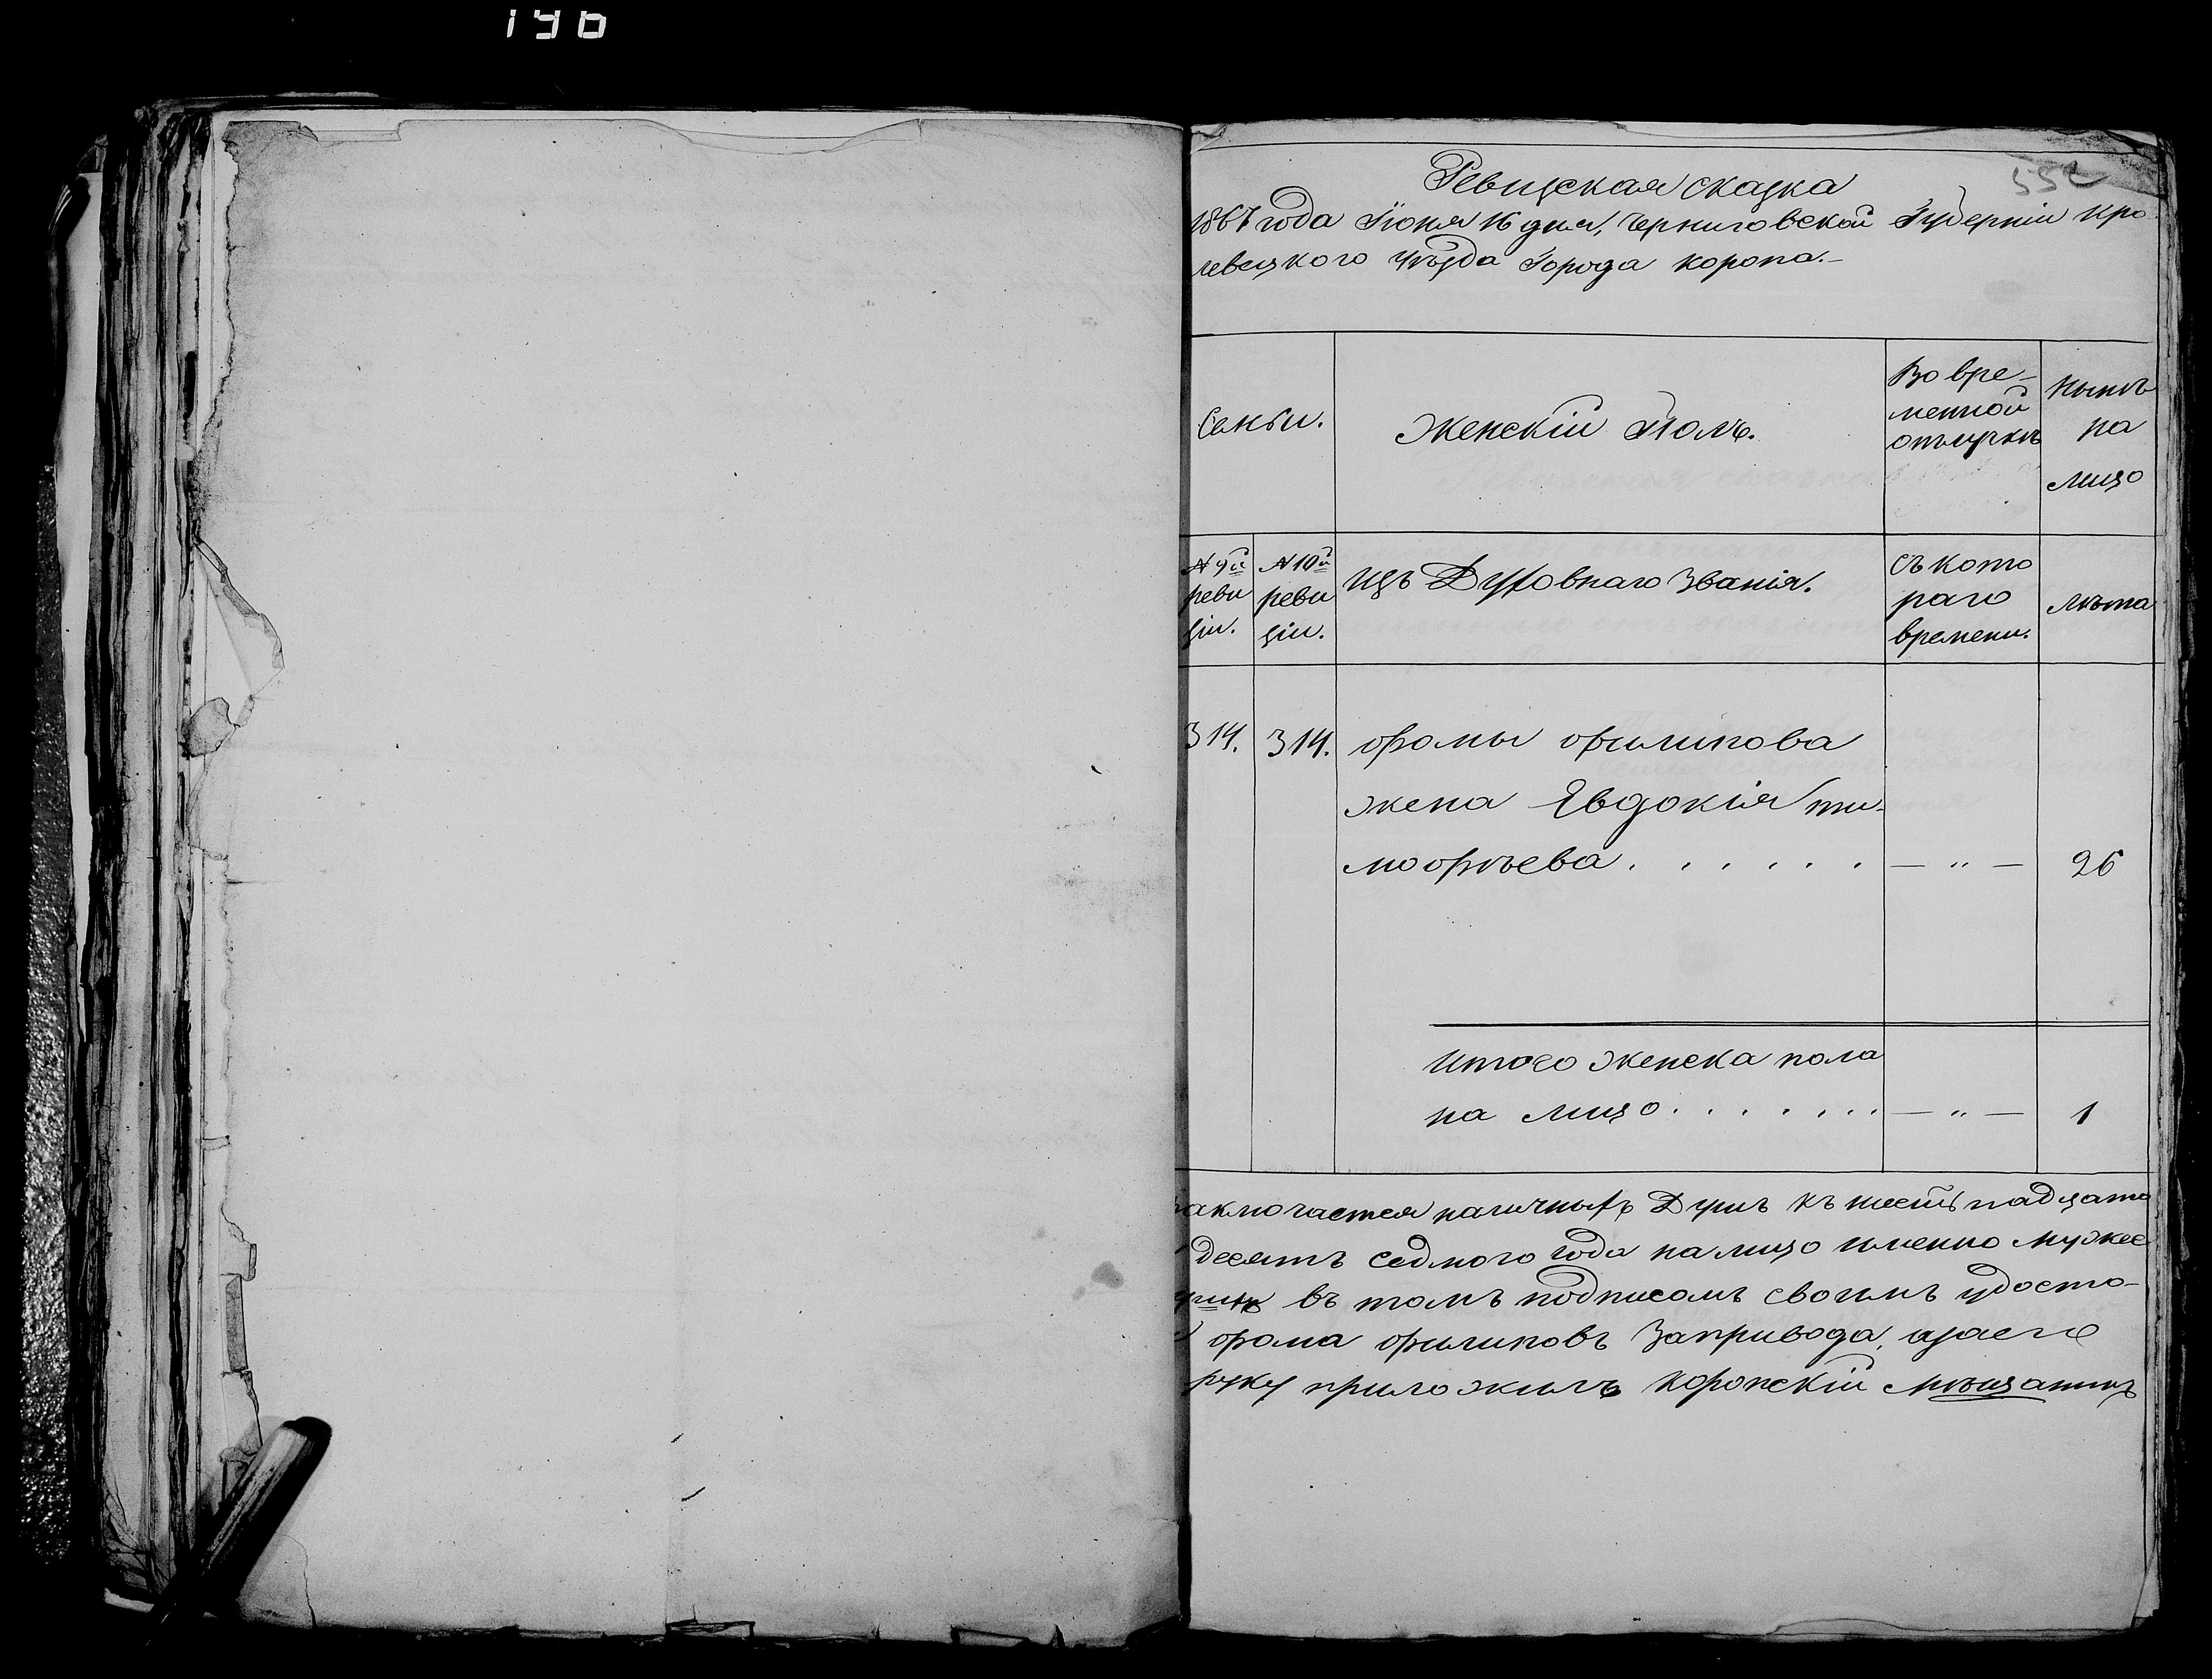 196
552
Ревизская сказка
1867 года Іюня 16 дня, Черниговской Губерніи Кро-
левецкого Уѣзда Города Коропа.-
Семьи.
Женскій Полъ.
Во вре-
менной
отлучкѣ
Нынѣ
на
лицо
№ 9й
реви
зіи.
№ 10й
реви
зіи.
Изъ Духовнаго Званія.
Съ кото
раго
времени.
Лѣта
314.
314.
Фомы Филипова
жена Евдокія Ти-
мофѣева . . . . . . — „ — 26
Итого женска пола
на лицо . . . . . . . — „ — 1
заключается наличныхъ Душъ къ шестьнадцато
десятъ седмого года на лицо именно мужес
въ томъ подписомъ своимъ удосто-
Фома Филиповъ Запривода, а за его
руку приложилъ Коропскій мѣщанинъ